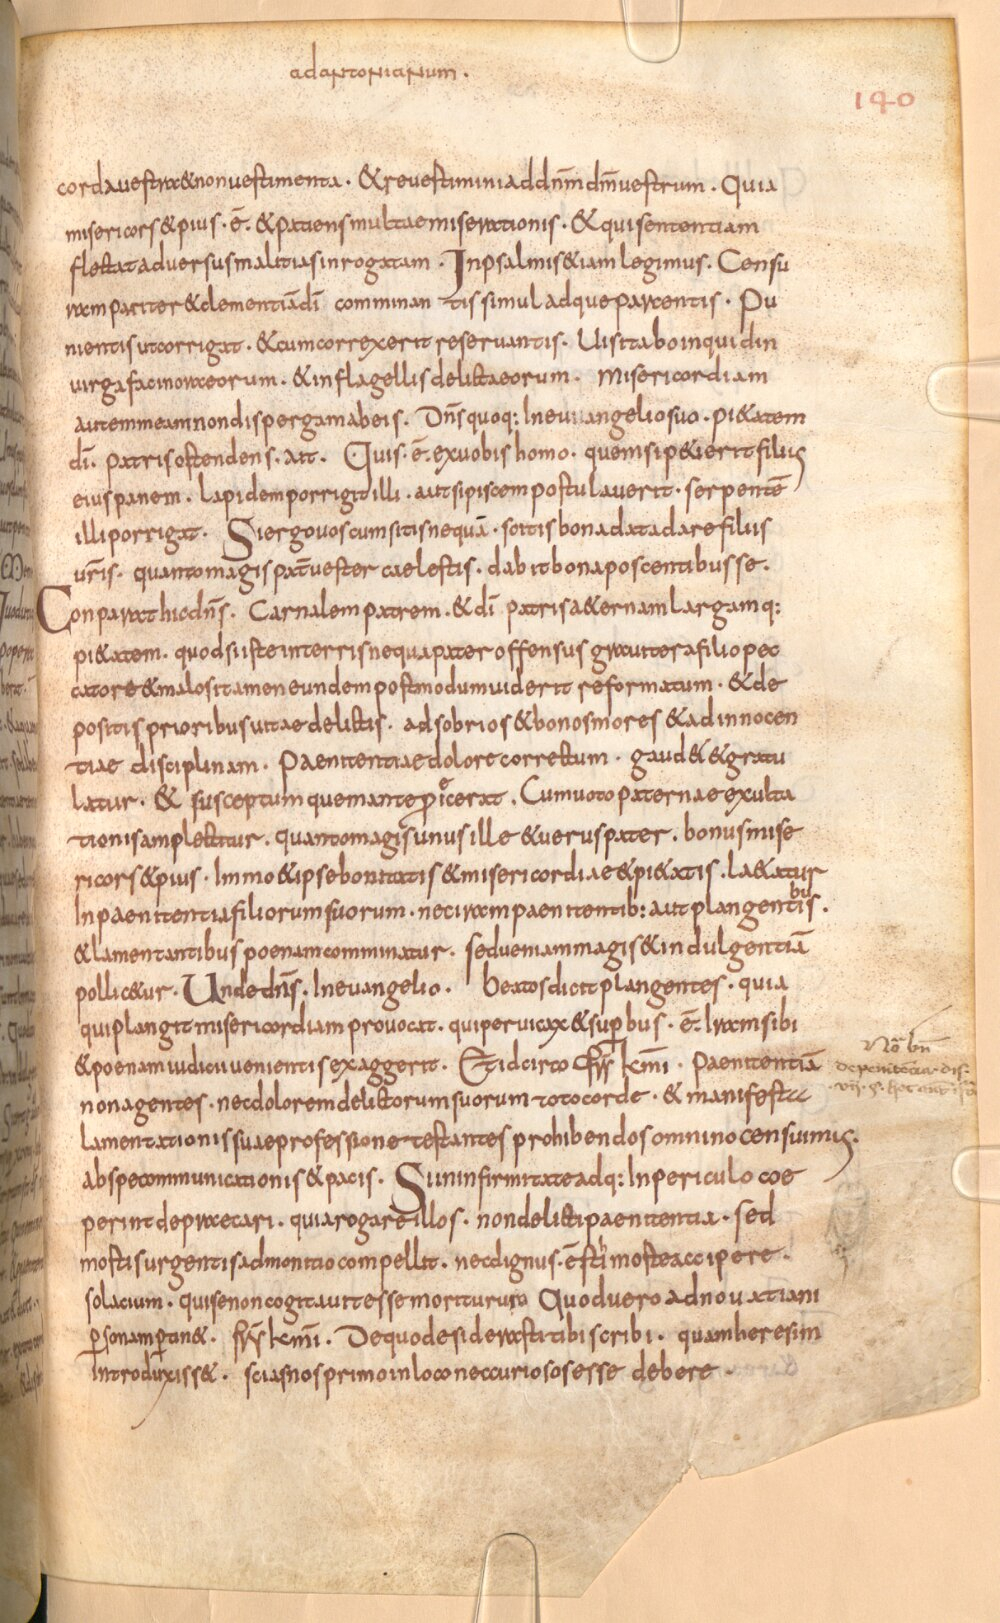 ad antonianum.
140
corda uestra & non uestimenta. & reuestimini ad dn̄m dm̄ uestrum. Quia
misericors & pius. ē. & patiens multae miserationis. & qui sententiam
flectat aduersus malitias inrogatam. In psalmis & iam legimus. Censu
ram pariter & clementiā dī comminan tis simul adque parcentis. Pu
nientis ut corrigat. & cum correxerit reseruantis. Uisitabo inquid in
uirga facinora eorum. & in flagellis delicta eorum. Misericordiam
autem meam non dispergam ab eis. Dn̄s quoq: In euuangelio suo. pi&atem
dī. patris ostendens. ait. Quis. ē. ex uobis homo. quem si p&ierit filius
eius panem. lapidem porrigit illi. aut si piscem postulauerit. serpentē
illi porrigat. Si ergo uos cum sitis nequā. scitis bona data dare filiis
ur̄is. quanto magis pat̄ uester caelestis. dabit bona poscentibus se.
Conparat hic dn̄s. Carnalem patrem. & dī patris a&ernam largamq:
pi&atem. quod si iste in terris nequa pater offensus grauiter a filio pec
catore & malo si tamen eundem postmodum uiderit reformatum. & de
positis prioribus uitae delictis. ad sobrios & bonos mores & ad innocen
tiae disciplinam. Paenitentiae dolore correctum. gaud& & gratu
latur. & susceptum quem ante proiecerat. Cum uoto paternae exulta
tionis amplectitur. quanto magis unus ille & uerus pater. bonus mise
ricors & pius. Immo & ipse bonitatis & misericordiae & pi&atis. la&atur
In paenitentia filiorum suorum. nec iram paenitentib: aut plangentibus.
& lamentantibus poenam comminatur. sed ueniam magis & indulgentiā
pollic&ur. Unde dn̄s. In euangelio. beatos dicit plangentes. quia
qui plangit misericordiam prouocat. qui peruicax & sup̄bus. ē. Iram sibi
& poenam iudicii uenientis exaggerit. Et idcirco frr̄ km̄i. Paenitentiā
non agentes. nec dolorem delictorum suorum toto corde. & manifesta
lamentationis suae professione testantes prohibendos omnino censuimus.
ab spe communicationis & pacis. Si in infirmitate adq: In periculo coe
perint depraecari. quia rogare illos. non delicti paenitentia. sed
mosti surgentis admonitio compellit. nec dignus. ē sti moste accipere.
solacium. qui se non cogitauit esse moriturum Quod uero ad nouatiani
p̄sonam p̄tin&. frr̄ km̄i. De quo desiderasti tibi scribi. quam heresim
Introduxiss&. scias nos primo in loco nec curiosos esse debere.
Nō bn̄
de penitencia. dis.